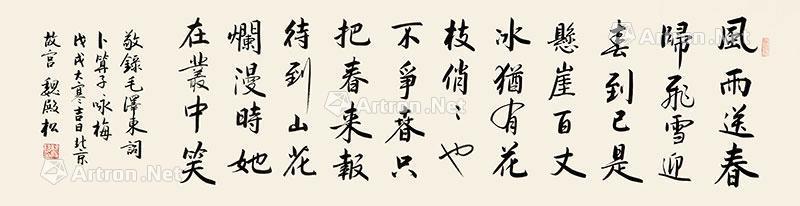 風雨送春
歸飛雪迎
春到已是
懸崖百丈
冰猶有花
枝俏〻也
不爭春只
把春来報
待到山花
爛漫時她
在叢中笑
敬錄毛澤東詞
卜算子咏梅
戊戌大寒吉日北京
故宮 魏殿松
Artron.Net
Artron.Net
Artron.Net
Artron.Net
Artron.Net
Artron.Net